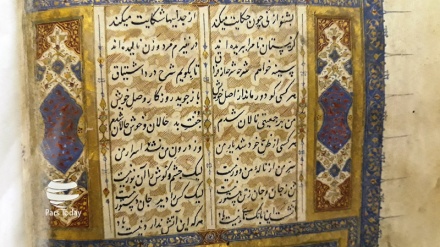 بشنو از نی چون حکایت میکند از جداییها شکایت میکند
کز نیستان تا مرا ببریده اند در نفیرم مرد و زن نالیده اند
سینه خواهم شرحه شرحه از فراق تا بگویم شرح درد اشتیاق
هر کسی کو دور ماند از اصل خویش باز جوید روزگار وصل خویش
من بهر جمعیتی نالان شدم جفت بد حالان و خوش حالان شدم
هر کسی از ظن خود شد یار من وز درون من اسرار من
سر من از ناله من دور نیست لیک چشم و گوش را آن نور نیست
تن ز جان و جان ز تن مستور نیست لیک کس را دید جان دستور نیست
آتش است این بانگ نای و نیست باد هر که این آتش ندارد نیست باد
Pars Today